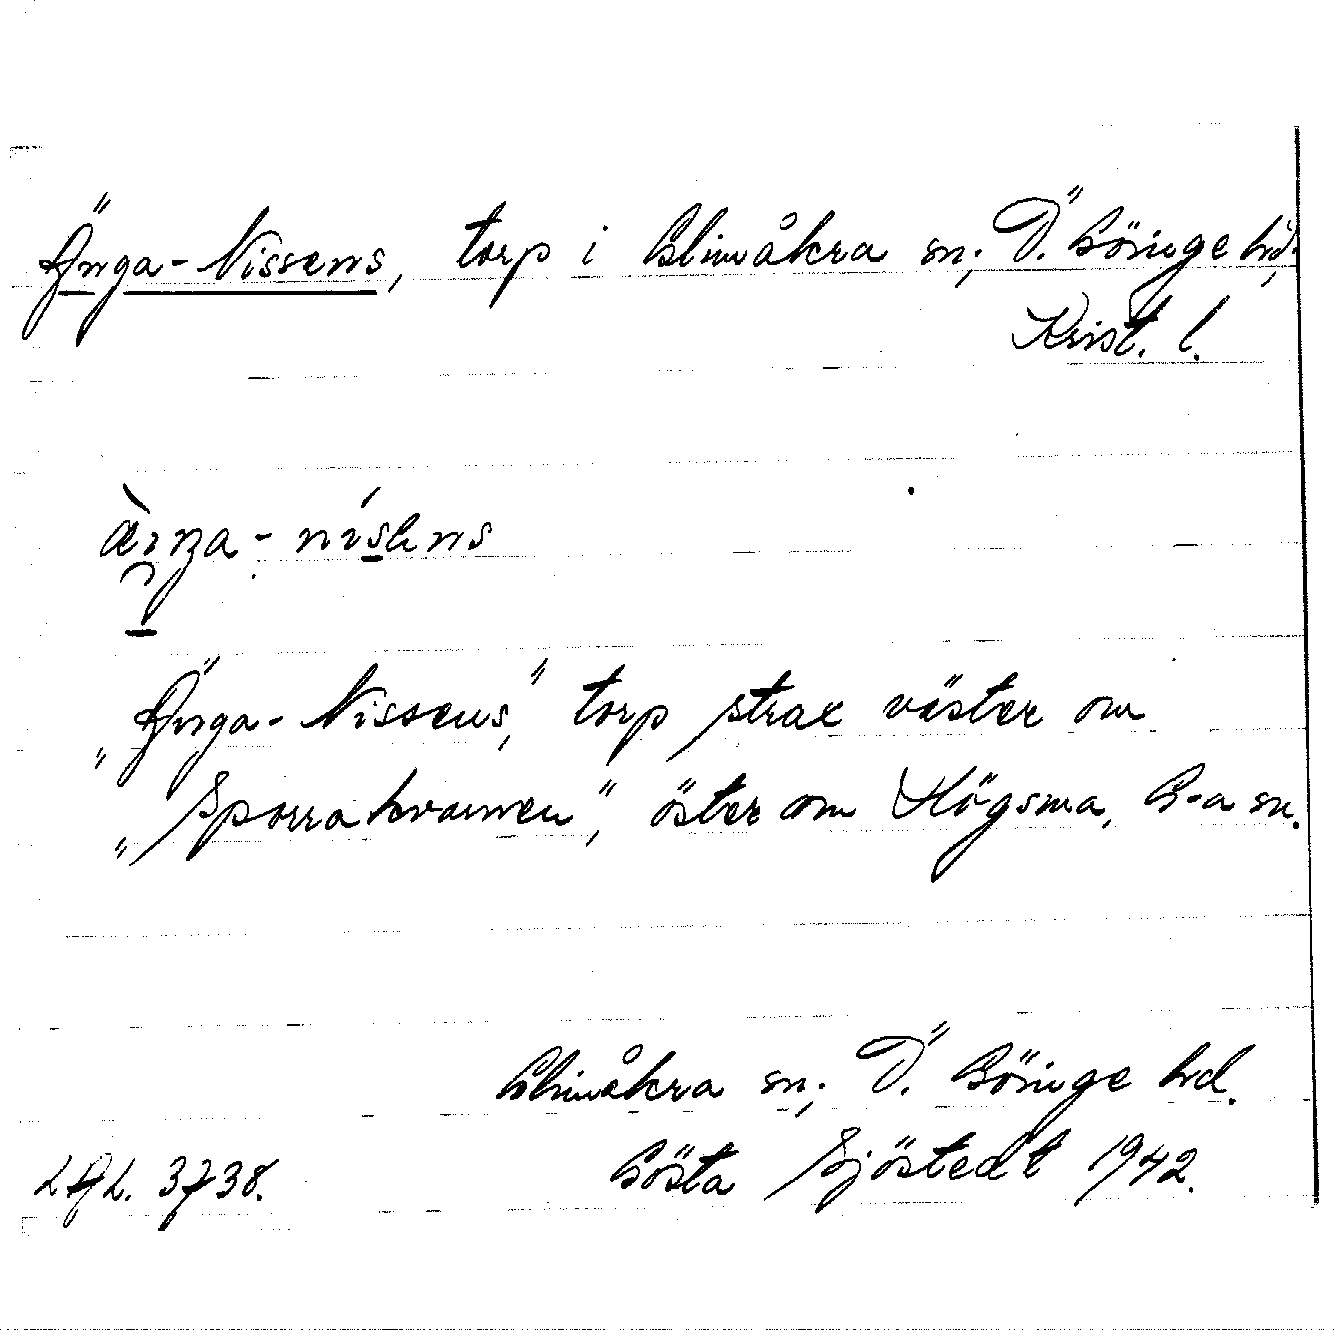 Änga-Nissens, torp i Glimåkra sn, Ö. Göinge hd,
Krist. l.
„Änga-Nissens,” torp strax väster om
„Sporrakvarnen”, öster om Högsma, G-a sn.
Glimåkra sn, Ö. Göinge hd.
LAL. 3738. Gösta Sjöstedt 1942.